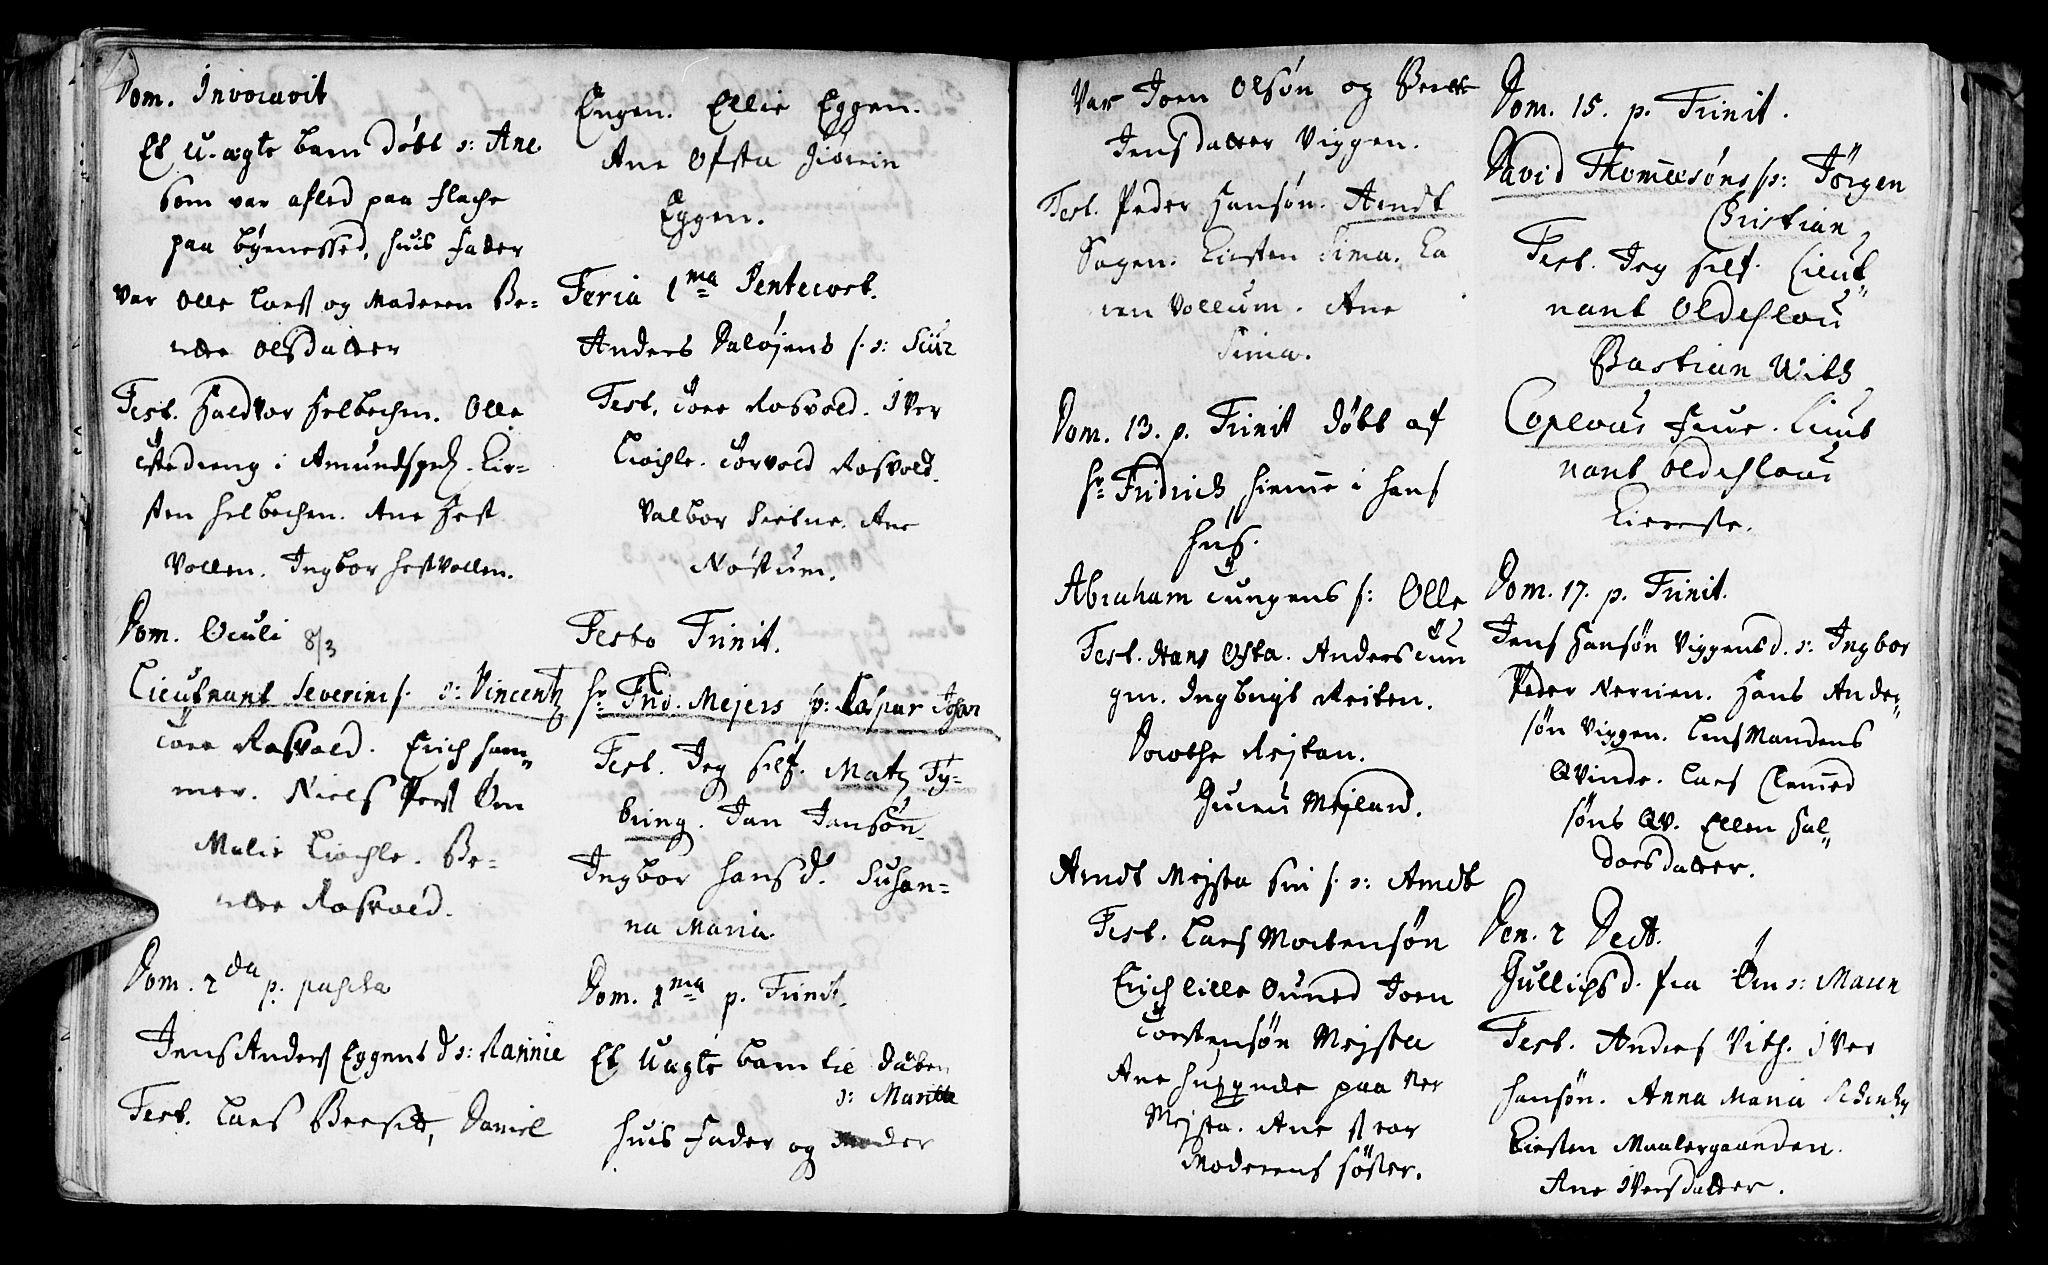 Dom. Invocavit
Et U. ægte barn døbt n: Ane
som var afled paa
paa Bynessed, huis Fader
var Olle Lars og Moderen Be-
ritte Olsdatter
Test. Haldvor Helbechen. Olle
i Kir-
sten Helbechen. Ane Hest
vollen. Ingbor Hestvollen.
Dom. Oculi 8/3
Lieutnant Severins s. n: Vincentz
Tore Rosvold. Erich Ham-
mer. Niels Øen
Malie Kiøchle. Be-
ritte Rosvold.
Dom. 2da p. pascha
Jens Anders Eggens d n: Rannie
Test. Lars Daniel
Engen. Ellie Eggen.
Ane Ofsta
Eggen.
Feria 1ma Pentecost.
Anders s. n: Siur
Test. Tore Rosvold. Iver
Kiøchle. Torvold Rosvold.
Valbor Ane
Nøstum.
Festo Trinit.
Hr Frid. Mejers s: Caspar Johan
Test. Jeg self. Matz Ty-
bring. Jan Jansøn
Ingbor Hansd. Susan-
na Maria.
Dom. 1ma p. Trinit.
Et Uægte barn til daaben
n: Maritte
huis Fader og Moder
Var Joen Olsøn og Beritte
Jensdatter Viggen.
Test. Peder Hansøn. Arndt
Sagen. Kirsten Sima. Ka
ren Vollum. Ane
Sima.
Dom. 13. p. Trinit døbt af
Hr Fridrich hieme i hans
huus.
Abraham Tungens s: Olle
Test. Hans Ofsta. Anders Tun
gen. Ingbugt Reiten.
Dorothe Rejtan.
Guru Mejland.
Arndt Mejsta s. n: Arndt
Test. Lars Mortensøn
Erich lille Joen
Torstensøn Mejsta
Ane paa Ner
Mejsta. Ane
Moderens søster.
Dom. 15. p. Trinit.
David Thomæsøns s: Jörgen
Christian
Test. Jeg self. Lieut-
nant Oldeslou
Bastian With
Coplous Frue. Lieut
nant Oldeslous
Kierreste.
Dom. 17. p. Trinit.
Jens Hansøn Viggens d. n: Ingbor
Peder Nervien. Hans Ander-
søn Viggen. Lensmandens
Qvinde. Lars Clemed
søns Qv. Ellen Hal-
dorsdatter.
Den. 2
Gullichs d. fra Øen n: Maren
Test. Anders Vith. Iver
Hansøn. Anna Maria
Kirsten Maalergaarden.
Ane Iversdatter.